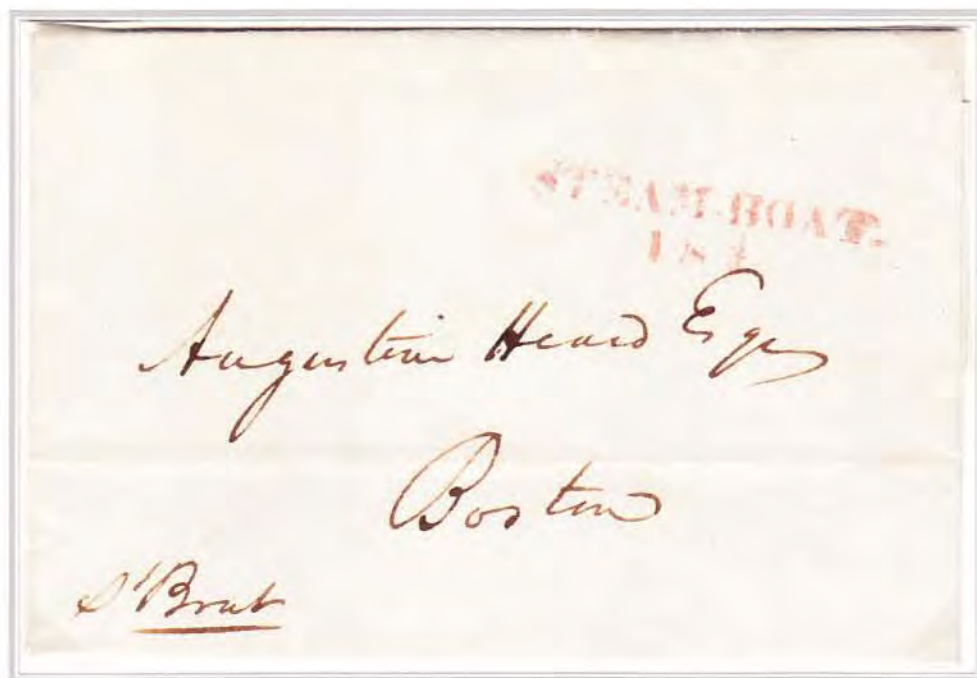 STEAM-BOAT.
18¾
Augustine Heard Esqr
Boston
St Boat